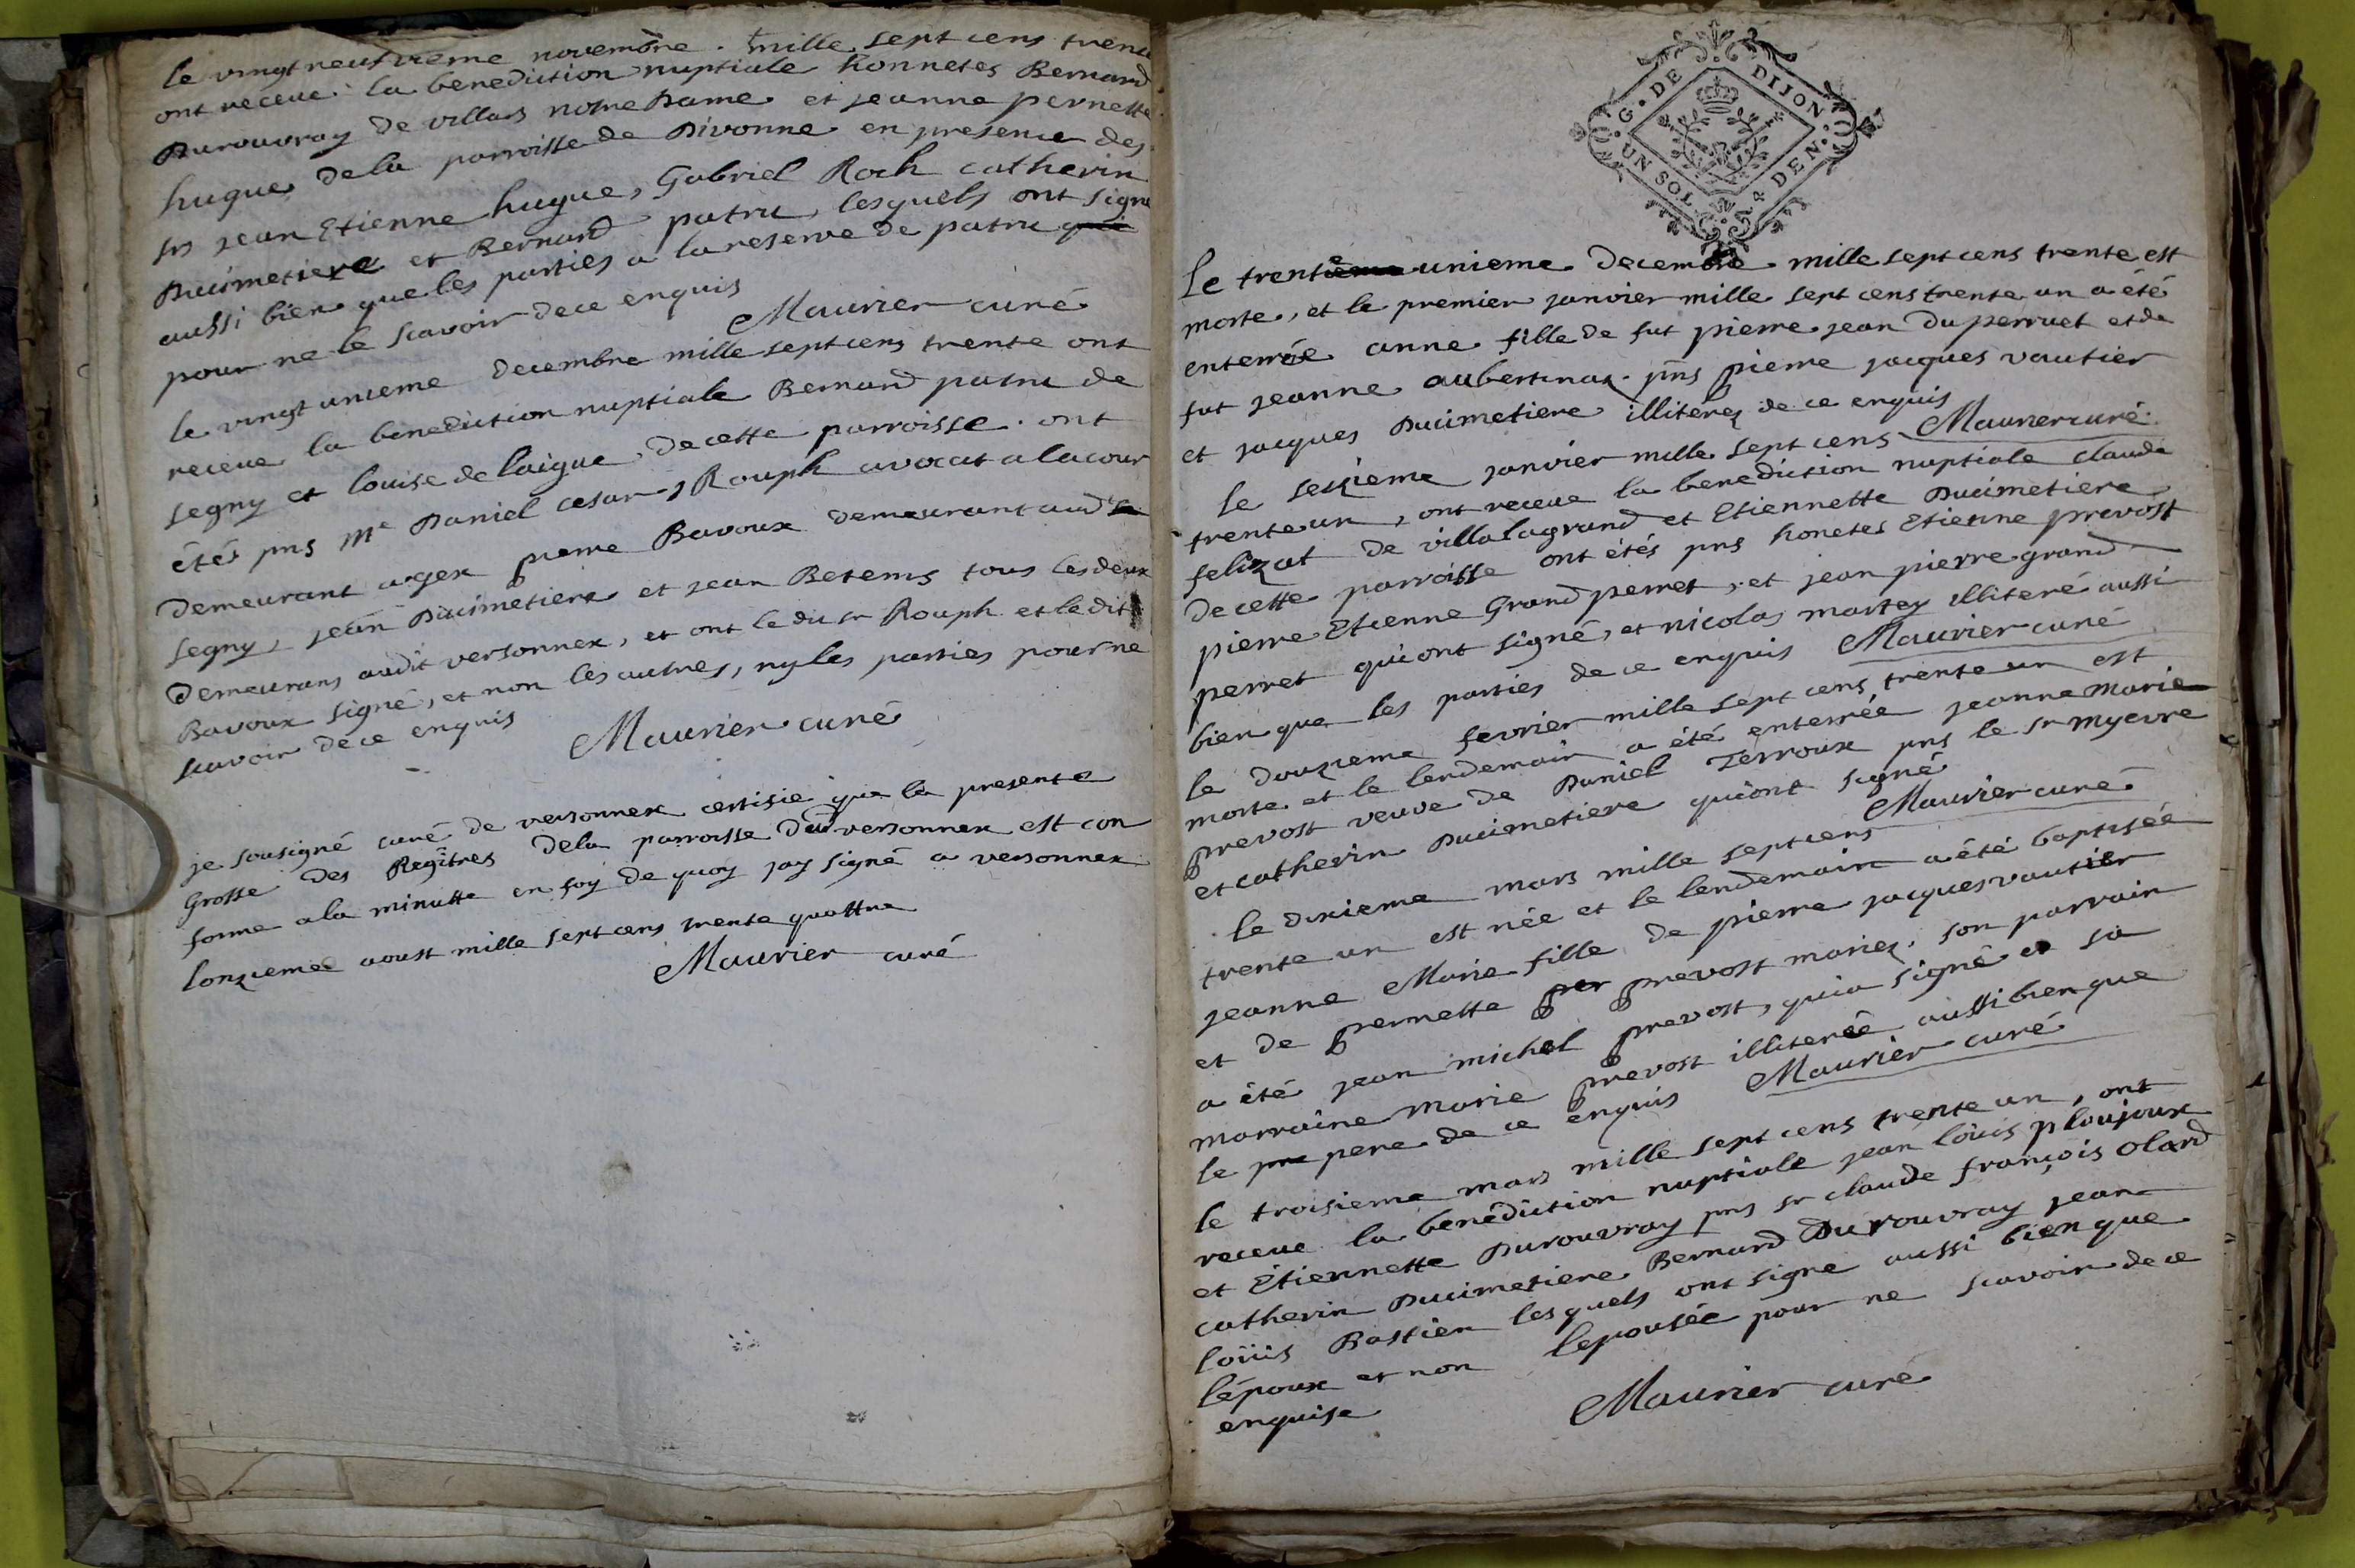 le vingt neufvieme novembre mille sept cens trente
ont receue la benediction nuptiale honnetes Bernard
Durouvray de villars notre Dame et jeanne pernette
hugue de la parroisse de Divonne en presence des
srs jean Etienne hugue, Gabriel Roch catherin
Ducimetiere et Bernard patru, lesquels ont signé
aussi bien que les parties a la reserve de patru qui
pour ne le scavoir de ce enquis
Maurier curé
le vingt unieme decembre mille sept cens trente ont
receue la benediction nuptiale Bernard patru de
segny et louise de laigue de cette parroisse. ont
étés pns Me Daniel cesar Rouph avocat a la cour
demeurant a gex pierre Bavoux demeurant aud
segny, jean Ducimetiere et jean Betems tous les deux
demeurans audit versonnex, et ont le du sr Rouph et le dit
Bavoux signé, et non les autres, ny les parties pour ne
scavoir de ce enquis
Maurier curé
je sousigné curé de versonnex certifie que la presente
Grosse des Regîtres de la parroisse dud versonnex est con
forme a la minutte en foy de quoy jay signé a versonnex
lonzieme aoust mille sept cens trente quattre
Maurier curé
G. DE DIJON
UN SOL 4 DEN.
Le trentieme unieme decembre mille sept cens trente est
morte, et le premier janvier mille sept cens trente un a été
enterrée anne fille de fut pierre jean duperruet et de
fut jeanne aubertinaz. pns pierre jacques vautier
et jacques Ducimetiere illiterez de ce enquis
Maurier curé
le sezieme janvier mille sept cens
trente un, ont receue la benediction nuptiale claude
felizat de villa la grand et Etiennette Ducimetiere
de cette parroisse ont étés pns honetes Etienne prevost
pierre Etienne Grand perret, et jean pierre grand
perret qui ont signé, et nicolas martey illiteré aussi
bien que les parties de ce enquis Maurier curé
le douzieme fevrier mille sept cens trente un est
morte et le lendemain a été enterrée jeanne Marie
prevost veuve de Daniel Terroux pns le sr myevre
et catherin Ducimetiere qui ont signé
Maurier curé
le dixieme mars mille sept cens
trente un est née et le lendemain a été baptisée
jeanne Marie fille de pierre jacques vautier
et de pernette per prevost mariez. son parrain
a été jean michel prevost, qui a signé et sa
marraine marie prevost illiterée aussi bien que
le pre pere de ce enquis Maurier curé
le troisieme mars mille sept cens trente un, ont
receue la benédiction nuptiale jean loüis ploujoux
et Étiennette Durouvray pns sr claude françois olard
catherin Ducimetiere Bernard Durouvray jean
loüis Bastien lesquels ont signe aussi bien que
lépoux et non lepousée pour ne scavoir de ce
enquise
Maurier curé